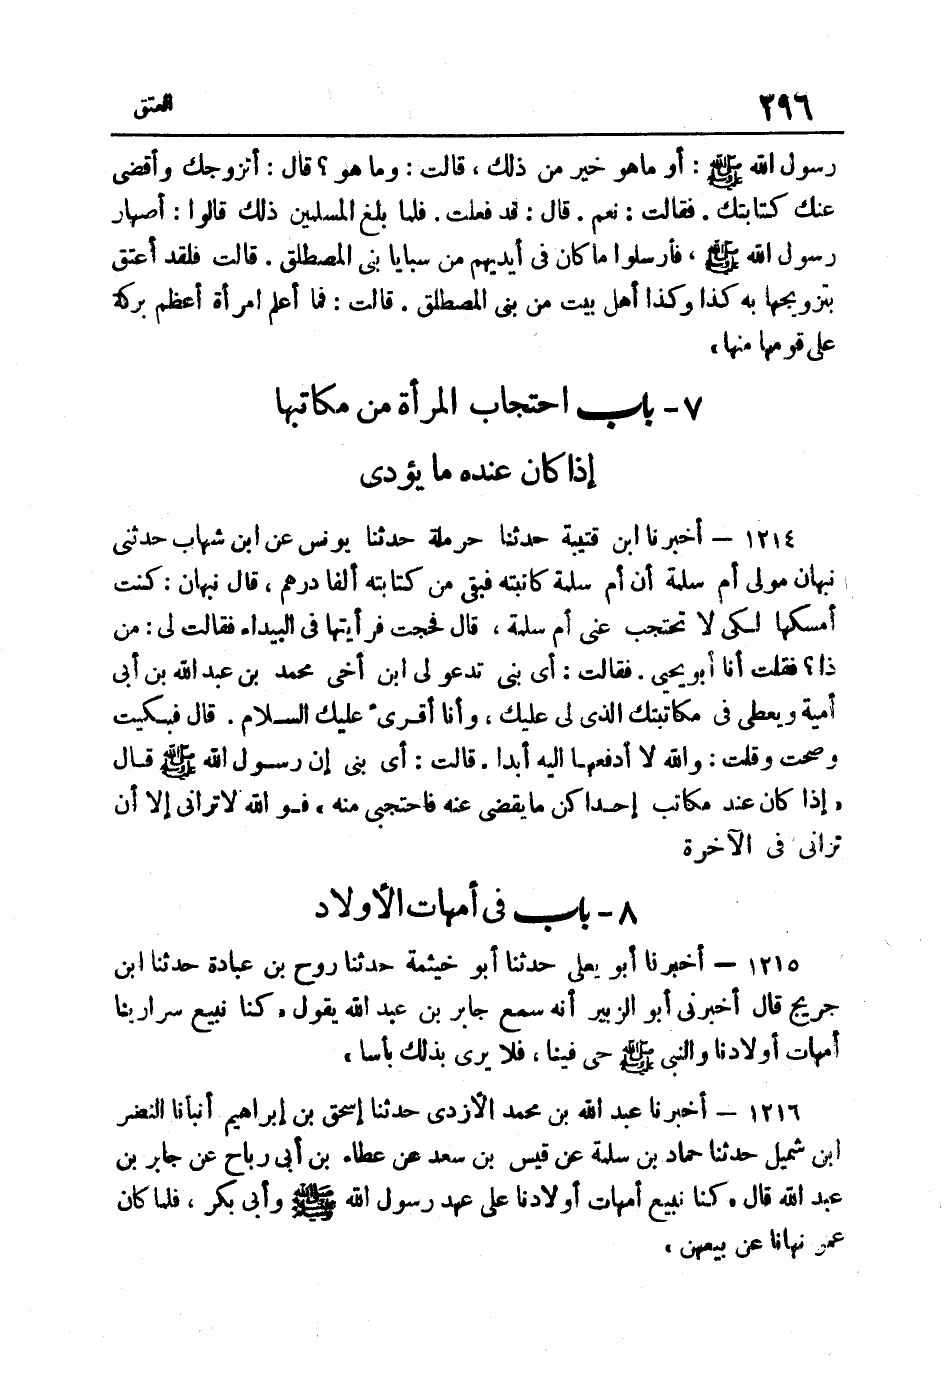 ٢٩٦ العتق
رسول الله ﷺ : أو ماهو خير من ذلك ، قالت : وما هو ؟ قال : أتزوجك وأقضى
عنك كتابتك . فقالت : نعم . قال : قد فعلت . فلما بلغ المسلمين ذلك قالوا : أصهار
رسول الله ﷺ ، فأرسلوا ما كان فى أيديهم من سبايا بنى المصطلق . قالت فلقد أعتق
بتزويجها به كذا وكذا أهل بيت من بنى المصطلق . قالت : فما أعلم امرأة أعظم بركة
على قومها منها »
٧ - باب احتجاب المرأة من مكاتبها
إذا كان عنده ما يؤدى
١٢١٤ - أخبرنا ابن قتيبة حدثنا حرملة حدثنا يونس عن ابن شهاب حدثنى
نبهان مولى أم سلمة أن أم سلمة كاتبته فبقى من كتابته ألفا درهم ، قال نبهان : كنت
أمسكها لكى لا تحتجب عنى أم سلمة ، قال فحجت فرأيتها فى البيداء فقالت لى : من
ذا ؟ فقلت أنا أبو يحيى . فقالت : أى بنى تدعو لى ابن أخى محمد بن عبد الله بن أبى
أمية ويعطى فى مكاتبتك الذى لى عليك ، وأنا أقرىء عليك السلام . قال فبكيت
وصحت وقلت : والله لا أدفعها اليه أبدا . قالت : أى بنى إن رسول الله ﷺ قال
« إذا كان عند مكاتب إحداكن ما يقضى عنه فاحتجبى منه » فو الله لا ترانى إلا أن
ترانى فى الآخرة
٨ - باب فى أمهات الأولاد
١٢١٥ - أخبرنا أبو يعلى حدثنا أبو خيثمة حدثنا روح بن عبادة حدثنا ابن
جريج قال أخبرنى أبو الزبير أنه سمع جابر بن عبد الله يقول « كنا نبيع سرارينا
أمهات أولادنا والنبى ﷺ حى فينا ، فلا يرى بذلك بأسا »
١٢١٦ - أخبرنا عبد الله بن محمد الأزدى حدثنا إسحق بن إبراهيم أنبأنا النضر
ابن شميل حدثنا حماد بن سلمة عن قيس بن سعد عن عطاء بن أبى رباح عن جابر بن
عبد الله قال « كنا نبيع أمهات أولادنا على عهد رسول الله ﷺ وأبى بكر ، فلما كان
عمر نهانا عن بيعهن »